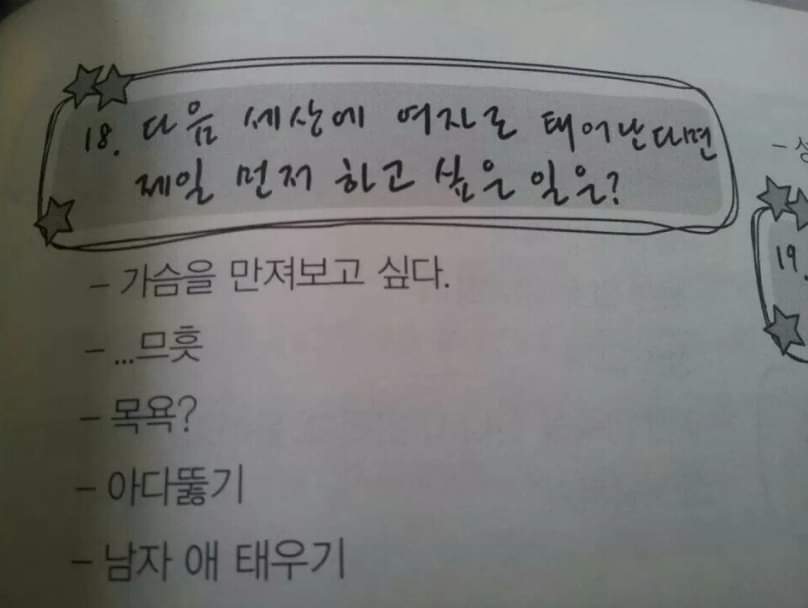 18. 다음 세상에 여자로 태어난다면
제일 먼저 하고 싶은 일은?
- 가슴을 만져보고 싶다.
- ...므흣
- 목욕?
- 아다뚫기
- 남자 애 태우기
19.